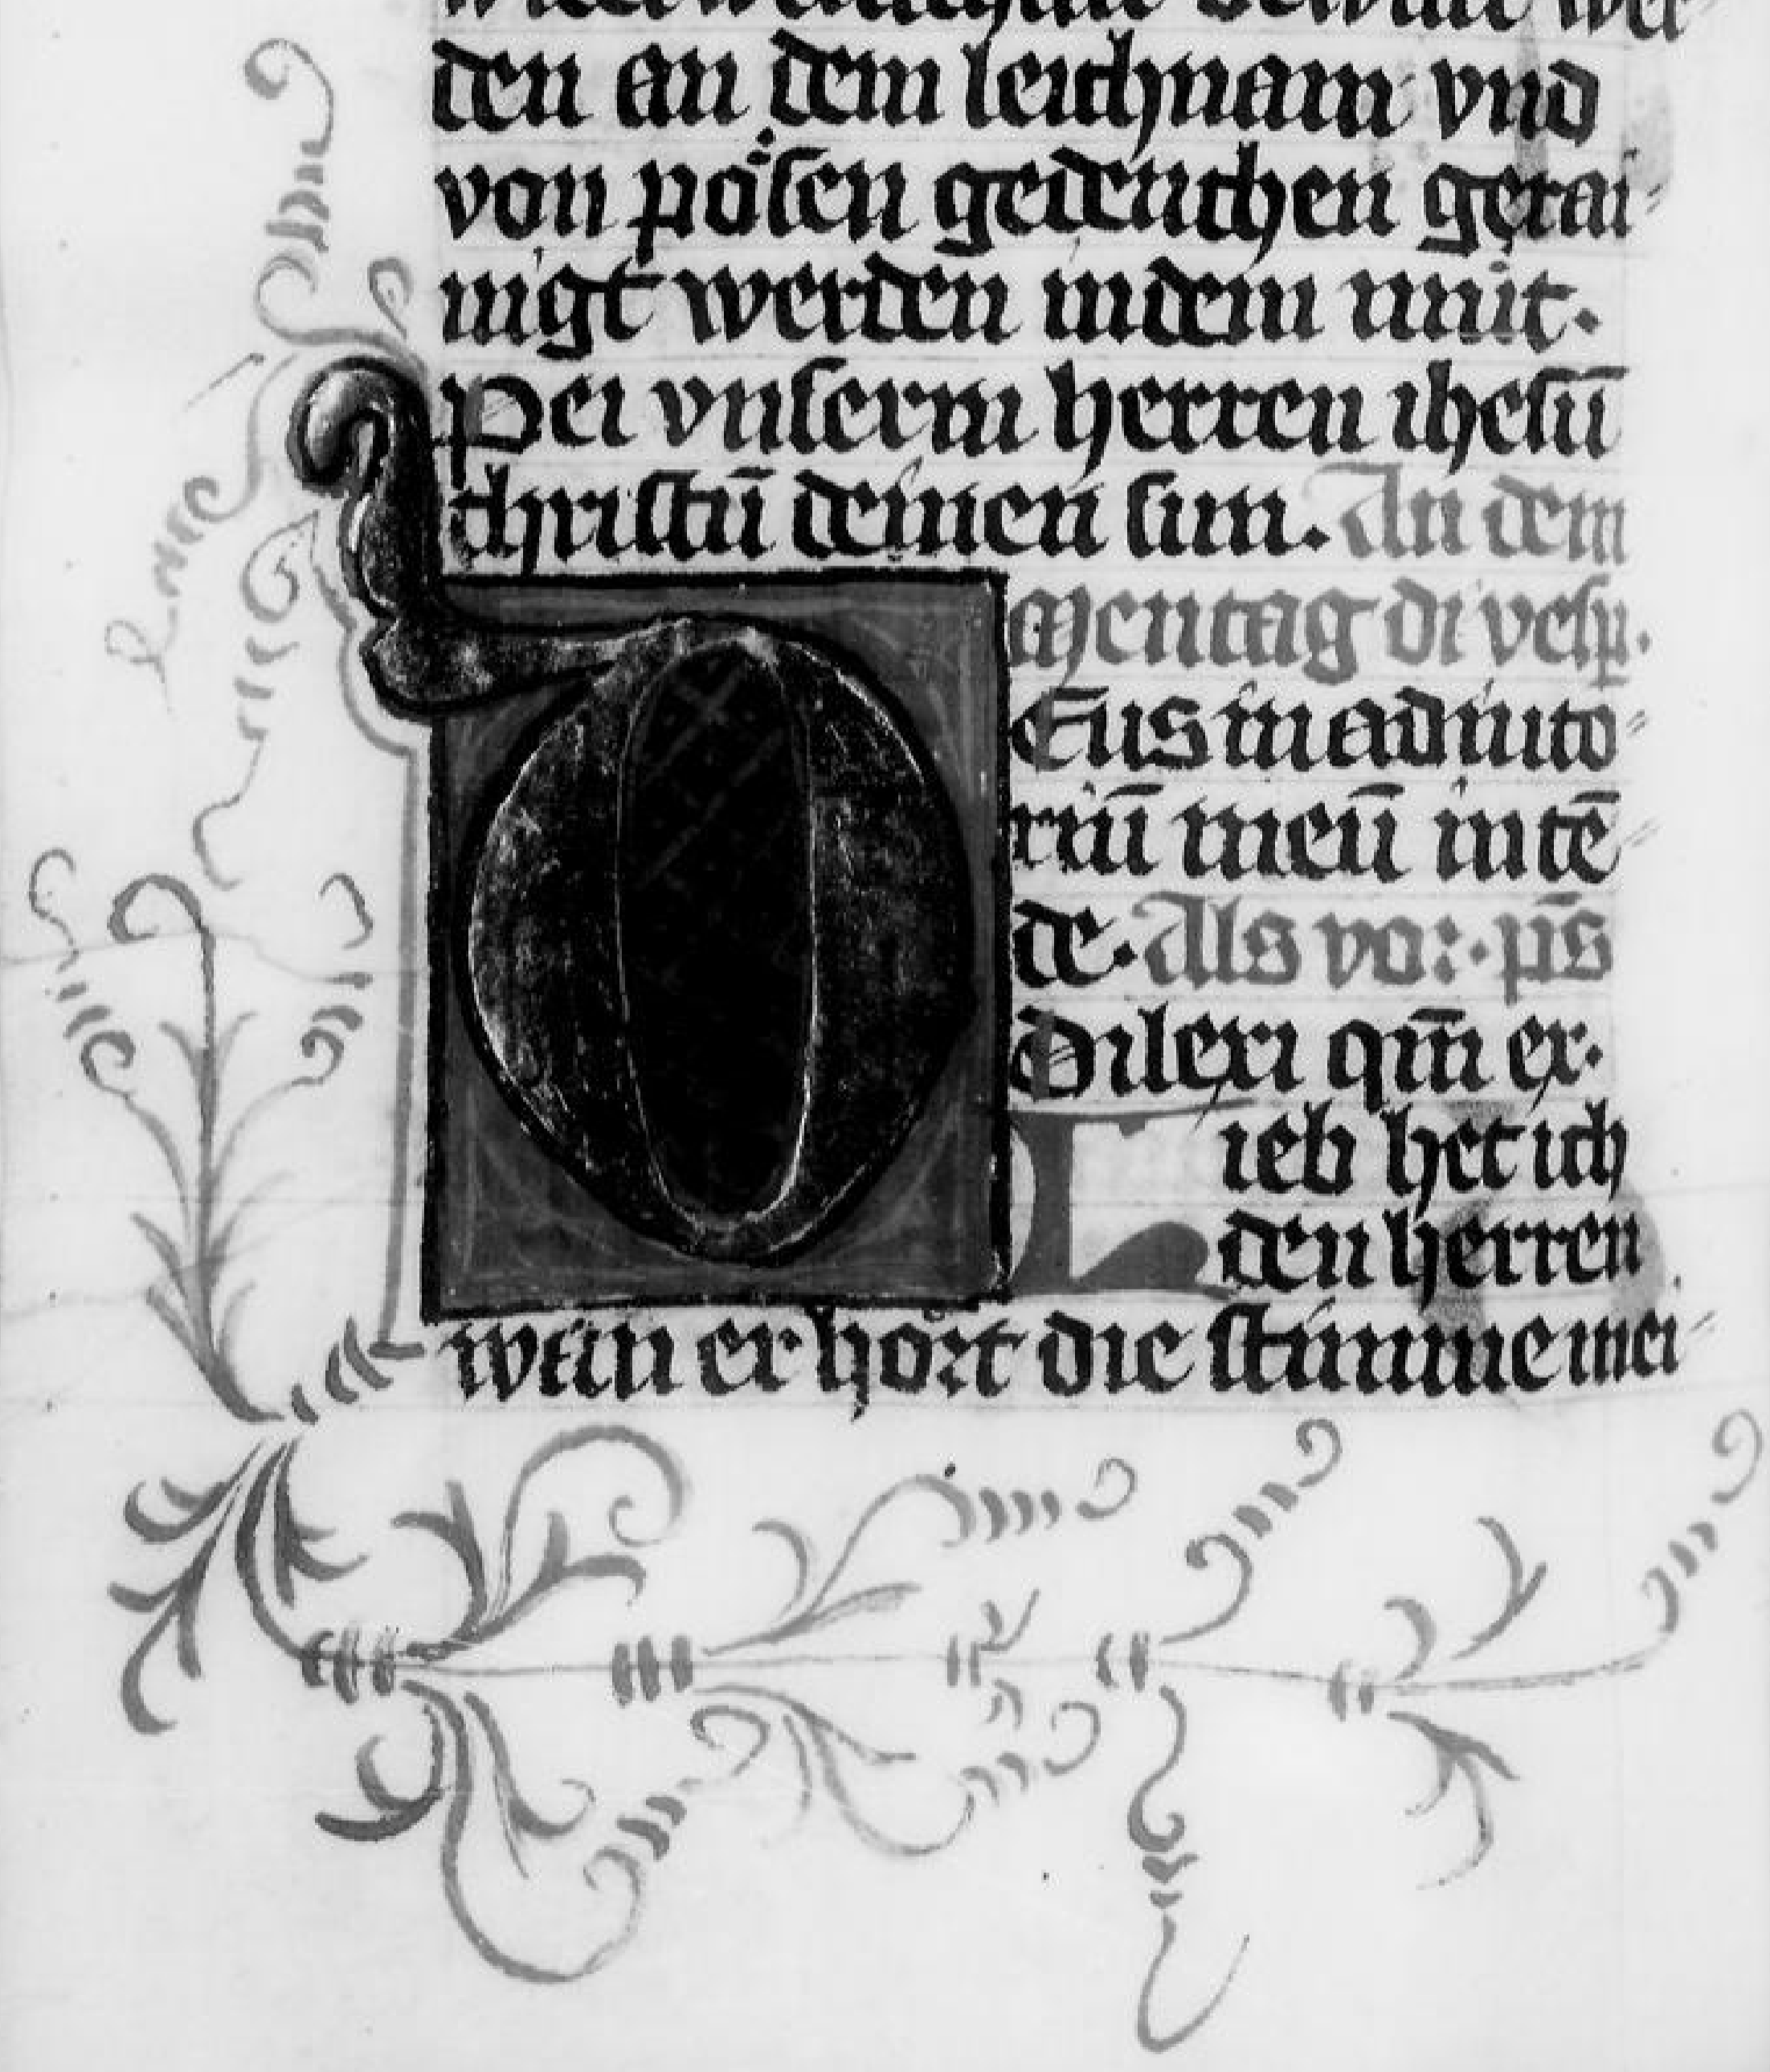 den an dem leichnam vnd
von pöſen gedenchen gerai-
nigt werden in dem mit.
Pei vnſerm herren iheſū
chriſtū deinen ſun. An dem
Mentag di veſp.
DEus in adiuto-
riū meū intē-
de. Als vor. pſ̄
Dilexi qm̄ ex.
Lieb het ich
den herren
wan er hört die ſtimme mei-